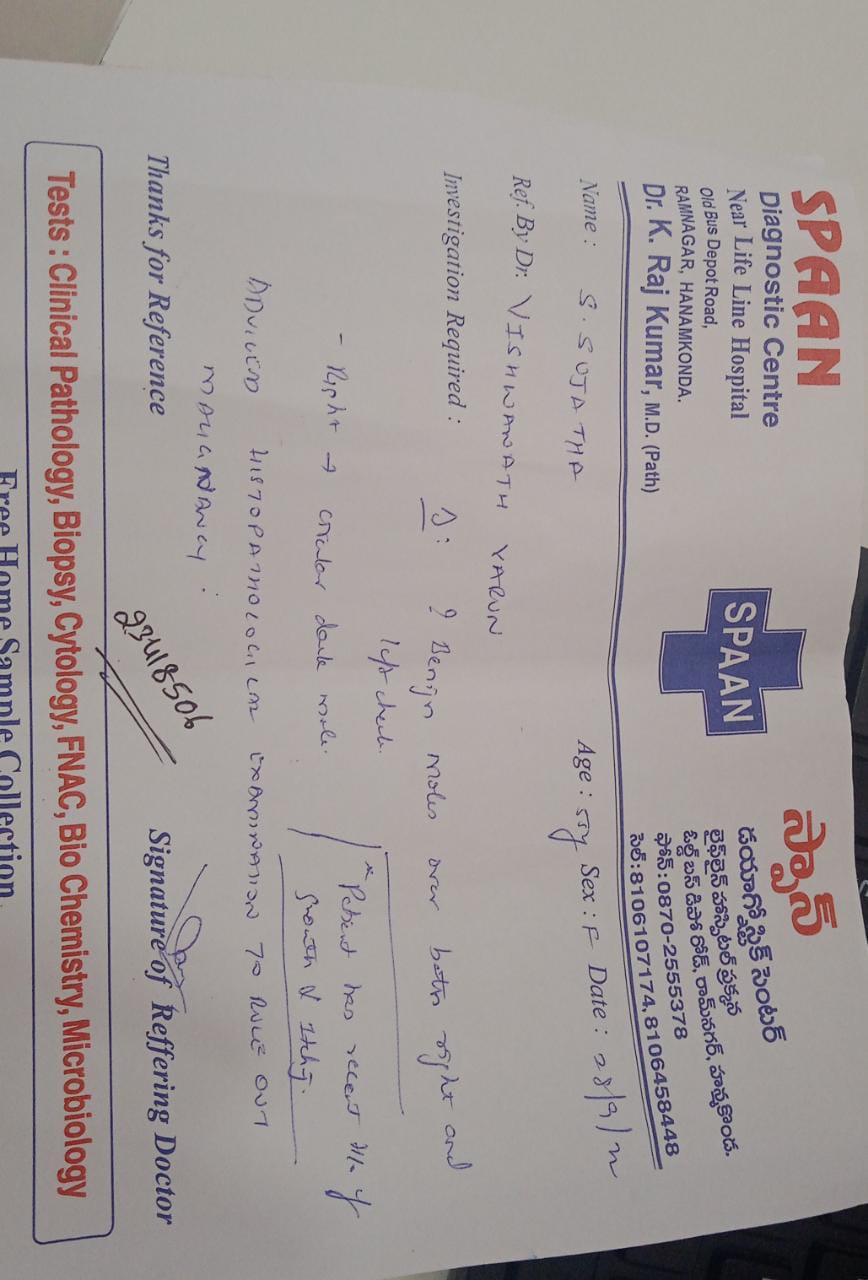 SPAAN
Diagnostic Centre
Near Life Line Hospital
Old Bus Depot Road,
RAMNAGAR, HANAMKONDA.
Dr. K. Raj Kumar, M.D. (Path)
SPAAN
స్పాన్
డయాగ్నోస్టిక్ సెంటర్
లైఫ్‌లైన్ హాస్పిటల్ ప్రక్కన
ఓల్డ్ బస్ డిపో రోడ్, రామ్‌నగర్, హన్మకొండ.
ఫోన్ : 0870-2555378
సెల్ : 8106107174, 8106458448
Name : S. SUJATHA Age : 55y Sex : F Date : 28/9/
Ref. By Dr. VISHWANATH VARUN
Investigation Required : ? Benign moles over both right and
left cheek.
- Right → circular dark mole.
* Patient has recent H/o of
growth & Itching.
ADVICED HISTOPATHOLOGICAL EXAMINATION TO RULE OUT
MALIGNANCY :
23418506
Thanks for Reference Signature of Reffering Doctor
Tests : Clinical Pathology, Biopsy, Cytology, FNAC, Bio Chemistry, Microbiology
Free Home Sample Collection